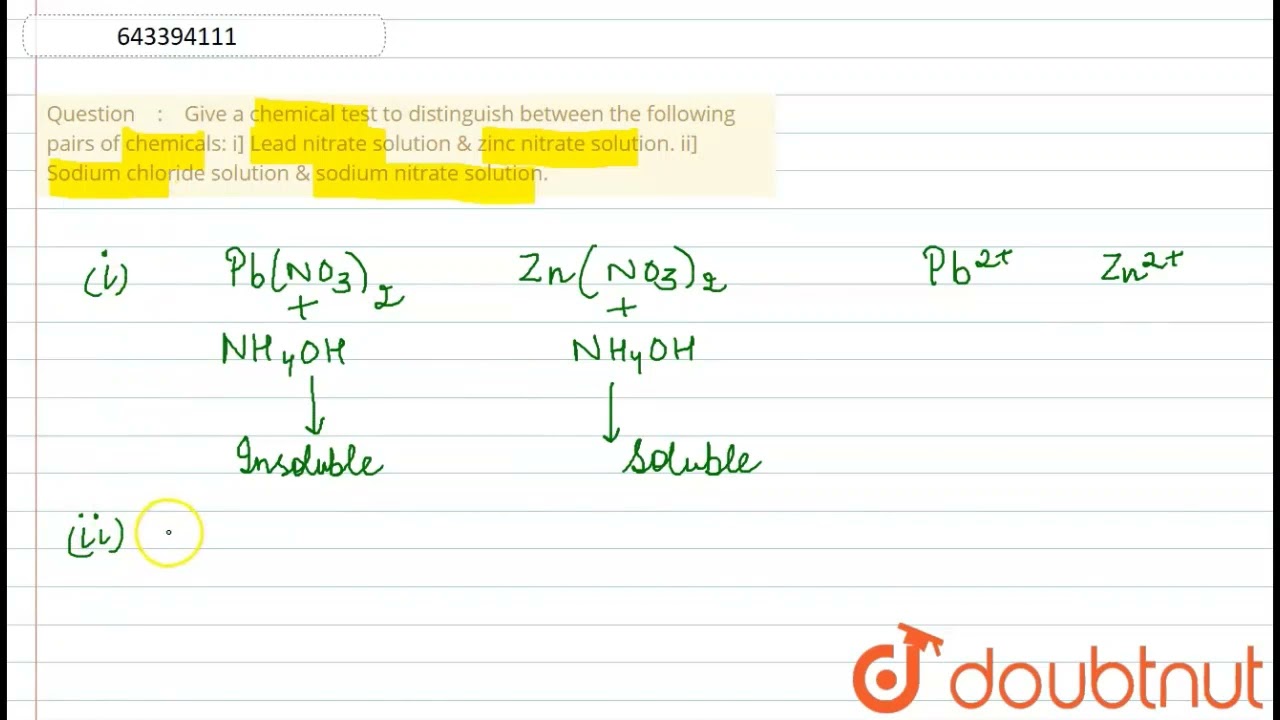 643394111
Question : Give a chemical test to distinguish between the following
pairs of chemicals: i] Lead nitrate solution & zinc nitrate solution. ii]
Sodium chloride solution & sodium nitrate solution.
(i) Pb(NO3)2 Zn(NO3)2 Pb2+ Zn2+
+ +
NH4OH NH4OH
↓ ↓
Insoluble Soluble
(ii)
doubtnut